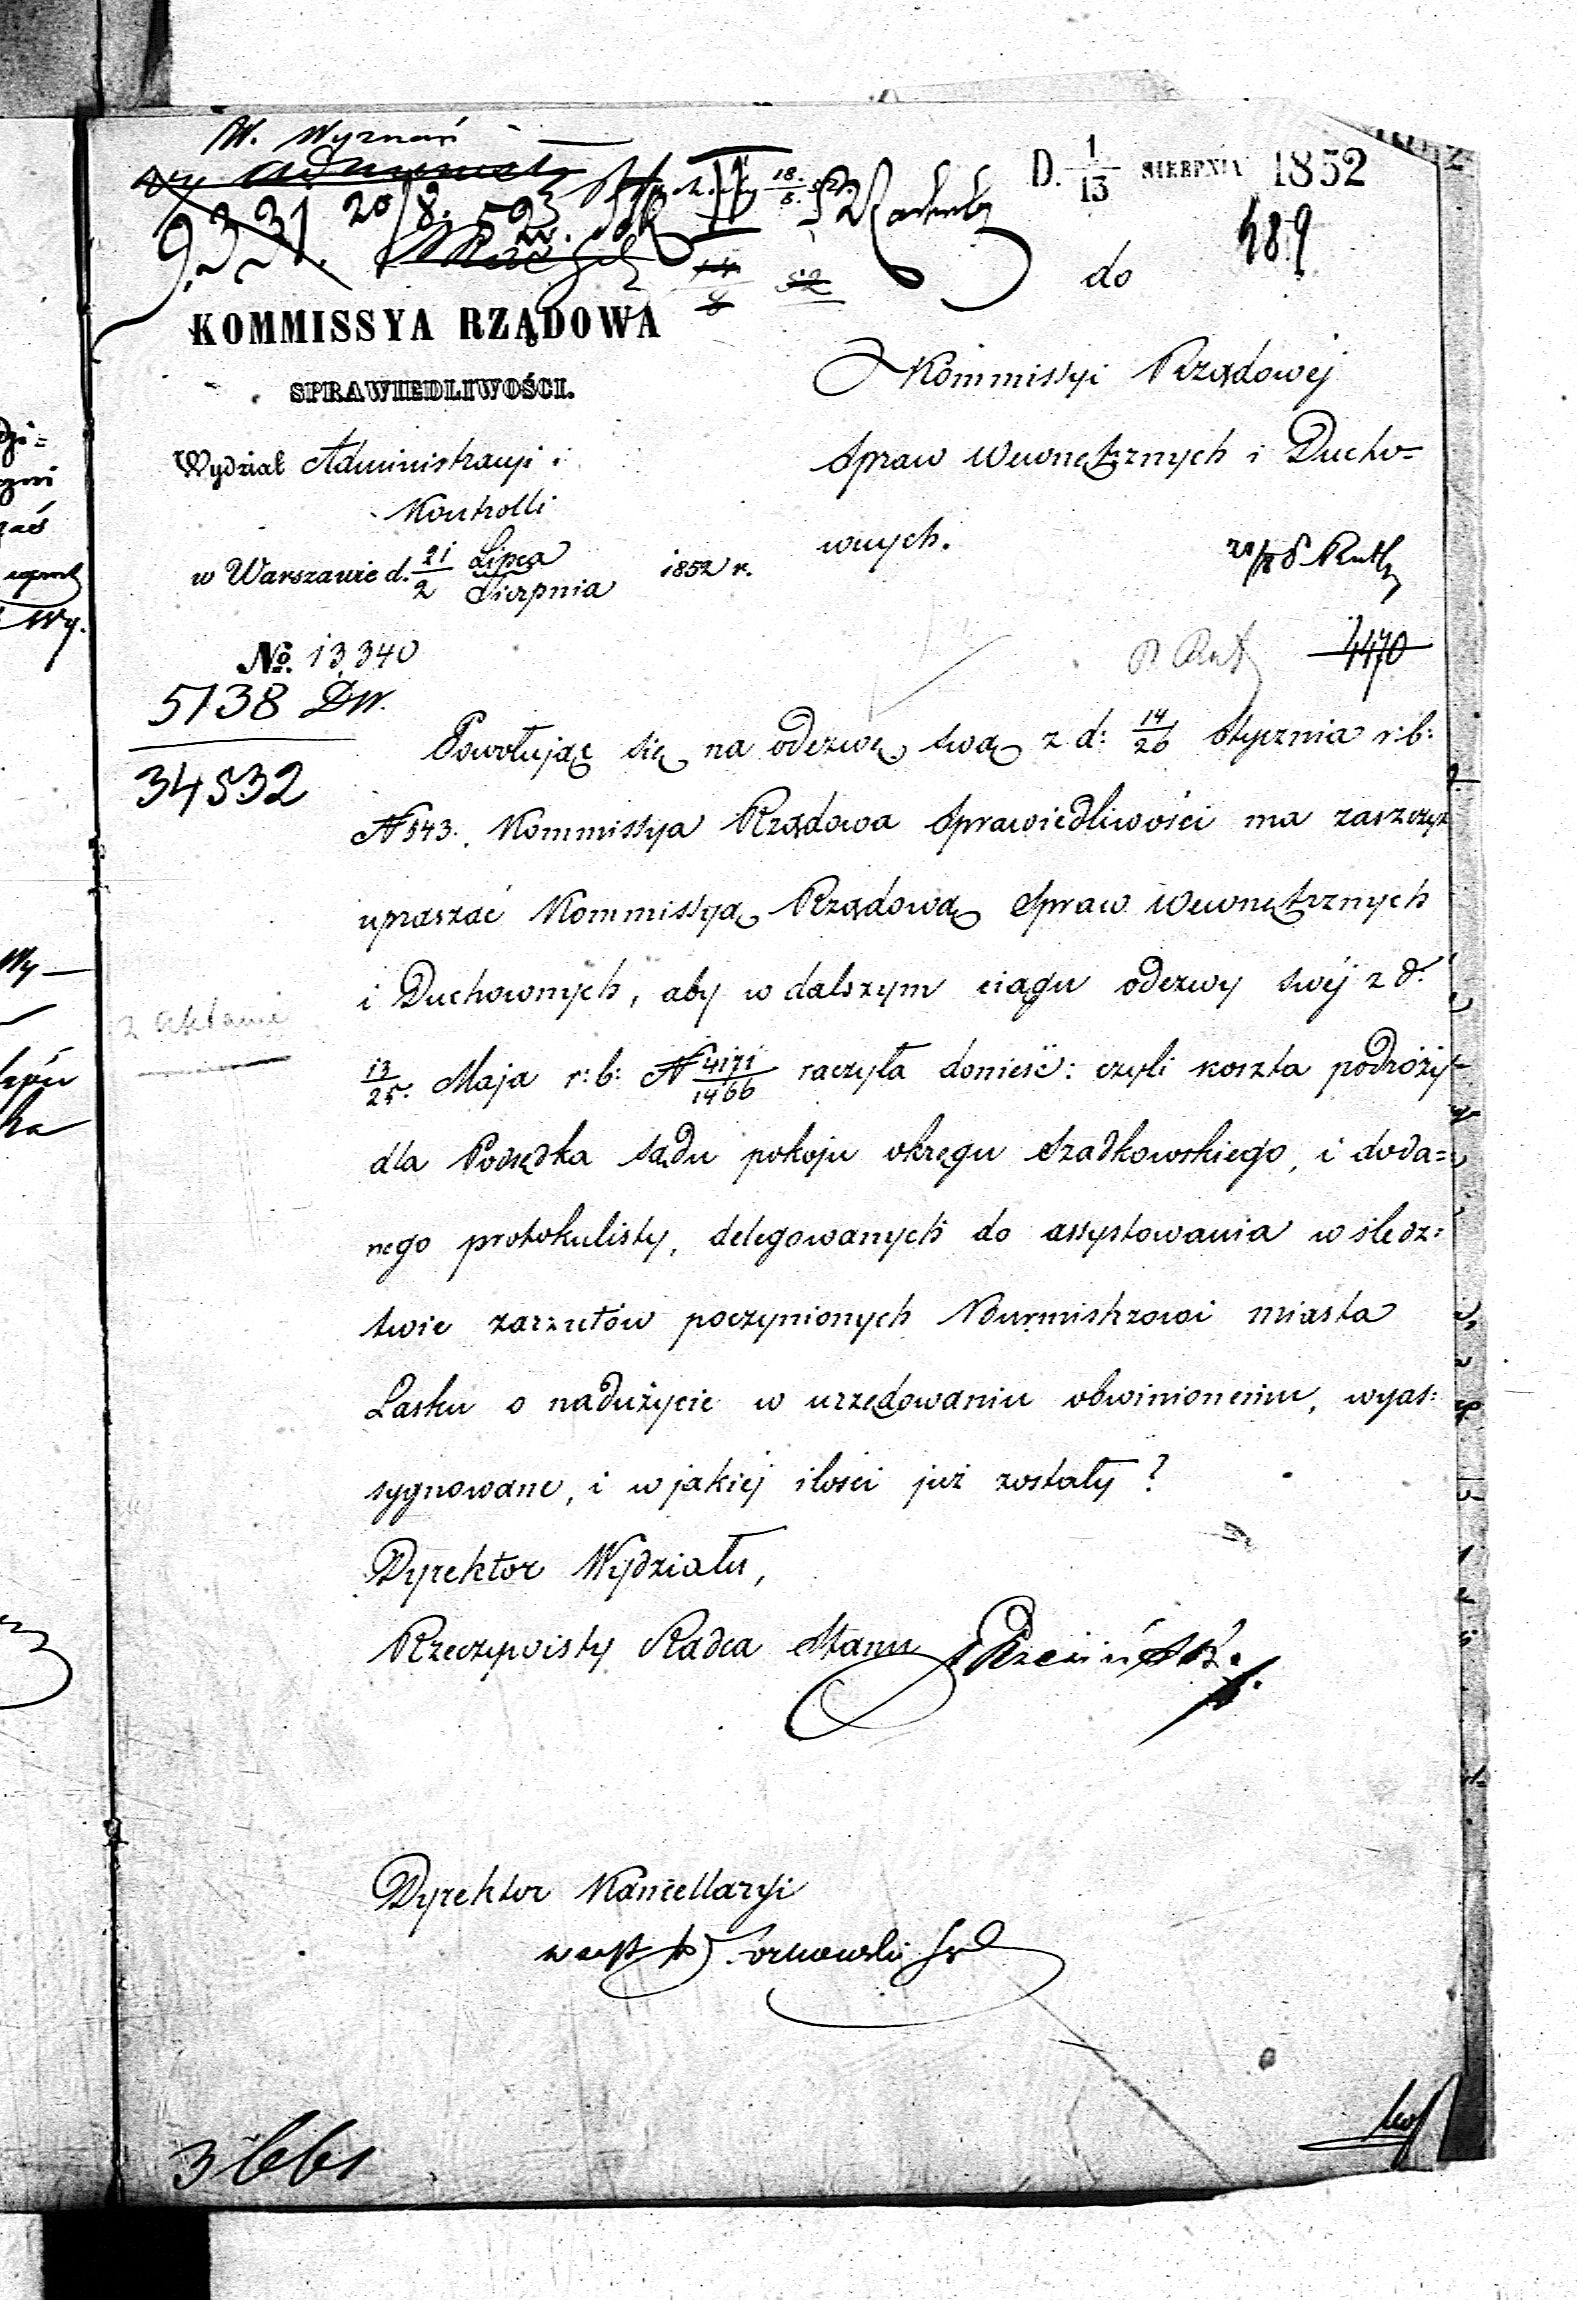 W. Wyznań
D. 1/13 SIERPNIA 1852
9331. 20/8.
489
do
KOMMISSYA RZĄDOWA
SPRAWIEDLIWOŚCI.
Kommissyi Rządowéj
Spraw Wewnętrznych i Ducho=
wnych.
Wydział Administracyi i
Kontrolli
w Warszawie d. 21/2 Lipca/Sierpnia 1852 r.
No. 13,340
4470
5138 DW.
34532
Powołując się na odezwę swą z d: 14/26 Stycznia r: b:
N 543. Kommissya Rządowa Sprawiedliwości ma zaszczyt
upraszać Kommissyą Rządową Spraw Wewnętrznych
i Duchownych, aby w dalszym ciągu odezwy swéj z d:
13/25. Maja r: b: N 4171/1466 raczyła donieść: czyli koszta podróży
dla Podsędka Sądu pokoju okręgu Szadkowskiego, i doda=
nego protokulisty, delegowanych do assystowania w śledz=
twie zarzutów poczynionych Burmistrzowi miasta
Łasku o nadużycie w urzędowaniu obwinionemu, wyas=
sygnowane, i w jakiéj ilości już zostały?
Dyrektor Wydziału,
Rzeczywisty Radca Stanu
Dyrektor Kancellaryi
3661